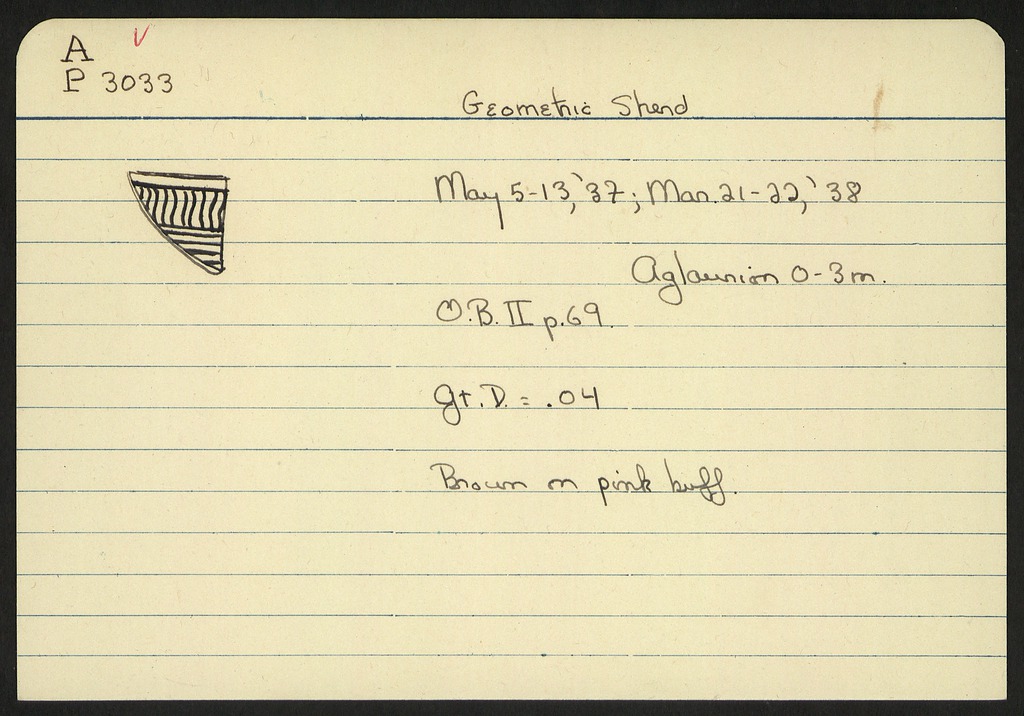 A
P 3033
Geometric Sherd
May 5-13, '37; Mar. 21-22, '38
Aglaurion 0-3m.
O.B. II p.69.
Gt. D. = .04
Brown on pink buff.